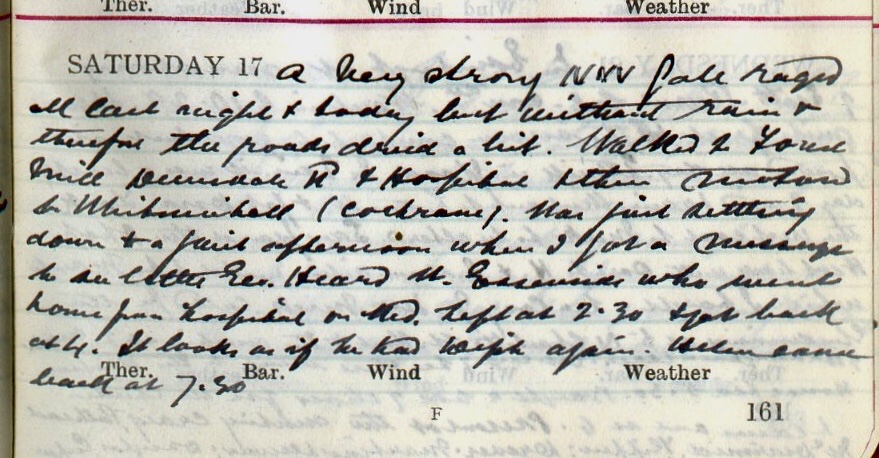 Ther. Bar. Wind Weather
SATURDAY 17 A very strong NW gale raged
all last night & today but without rain &
therefore the roads dried a bit. Walked to
Mill Rd & Hospital & then
to (Cochrane). Was just settling
down to a quiet afternoon when I got a message
to see little Geo. Heard at who went
home from hospital on Wed. Left at 2.30 & got back
at 4. It looks as if he had diph again. Helen came
Ther. Bar. Wind Weather
back at 7.30
F 161